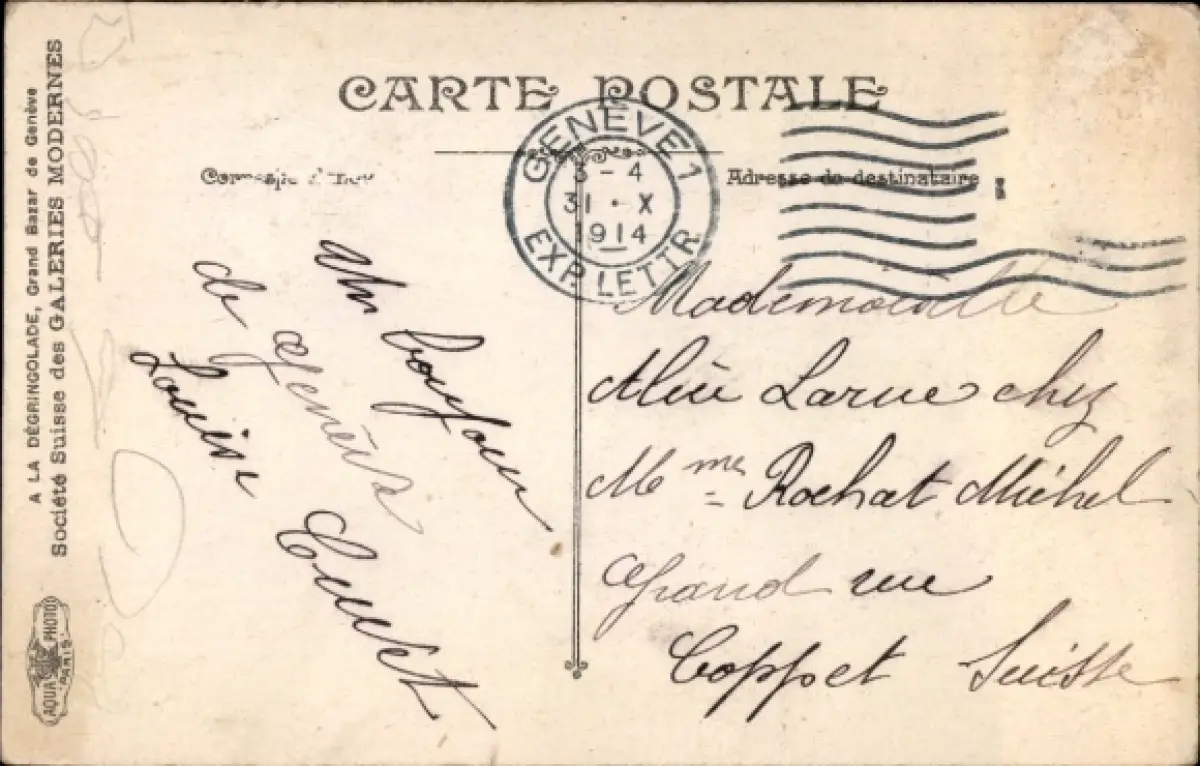 CARTE POSTALE
Adresse du destinataire
GENÈVE 1
3-4
31·X
1914
EXP. LETTR
Un bonjour
de Genève
Louise
Mademoiselle
Alice Larue chez
Mme Rochat Michel
Grand rue
Coppet Suisse
A LA DÉGRINGOLADE, Grand Bazar de Genève
Société Suisse des GALERIES MODERNES
AQUA PHOTO
PARIS